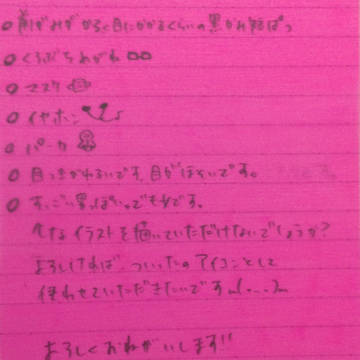 ○ 前がみが かるく目にかかるくらいの黒かみ短ぱつ
○ くろぶちめがね
○ マスク
○ イヤホン
○ パーカ
○ 目つきがわるいです。目がほそいです。
○ すっごい男っぽい
なイラストを描いていただけないでしょうか?
よろしければ、ついったのアイコンとして
使わせていただきたいですm(._.)m
よろしくおねがいします!!